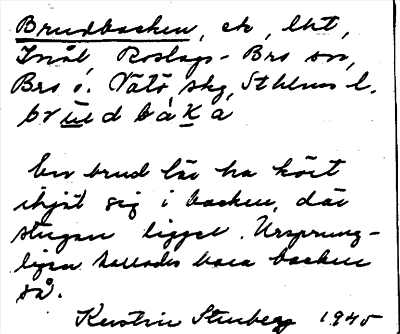 Brudbacken, ek, lht,
Inål, Roslags-Bro sn,
Bro o. Vätö skg, Sthlms l.
brudbaka
En brud lär ha kört
ihjäl sig i backen, där
stugan ligger. Ursprung-
ligen kallades bara backen
så.
Kerstin Stenberg 1945